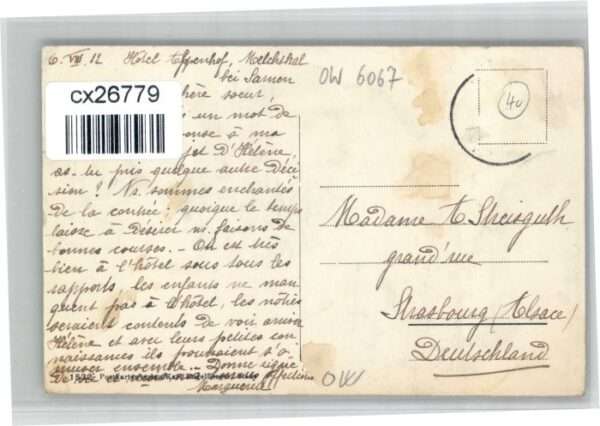 6. VIII. 12 Hôtel Alpenhof, Melchthal
bei Sarnen
chère soeur,
un mot de
réponse à ma
D'Hélène,
as-tu pris quelque autre Déci
sion ? Ns. sommes enchantés
De la contrée; quoique le temps
laisse à Désirer ns. faisons de
bonnes courses. - On est très
bien à l'hôtel sous tous les
rapports, les enfants ne man
quent pas à l'hôtel, les nôtres
seraient contents de voir arriver
Hélène et avec leurs petites con
naissances ils pourraient s'a
muser ensemble.. Donne signe
De vie
Marguerite
cx26779
OW 6067
40
Madame
grand'rue
Strasbourg (Alsace)
Deutschland
OW